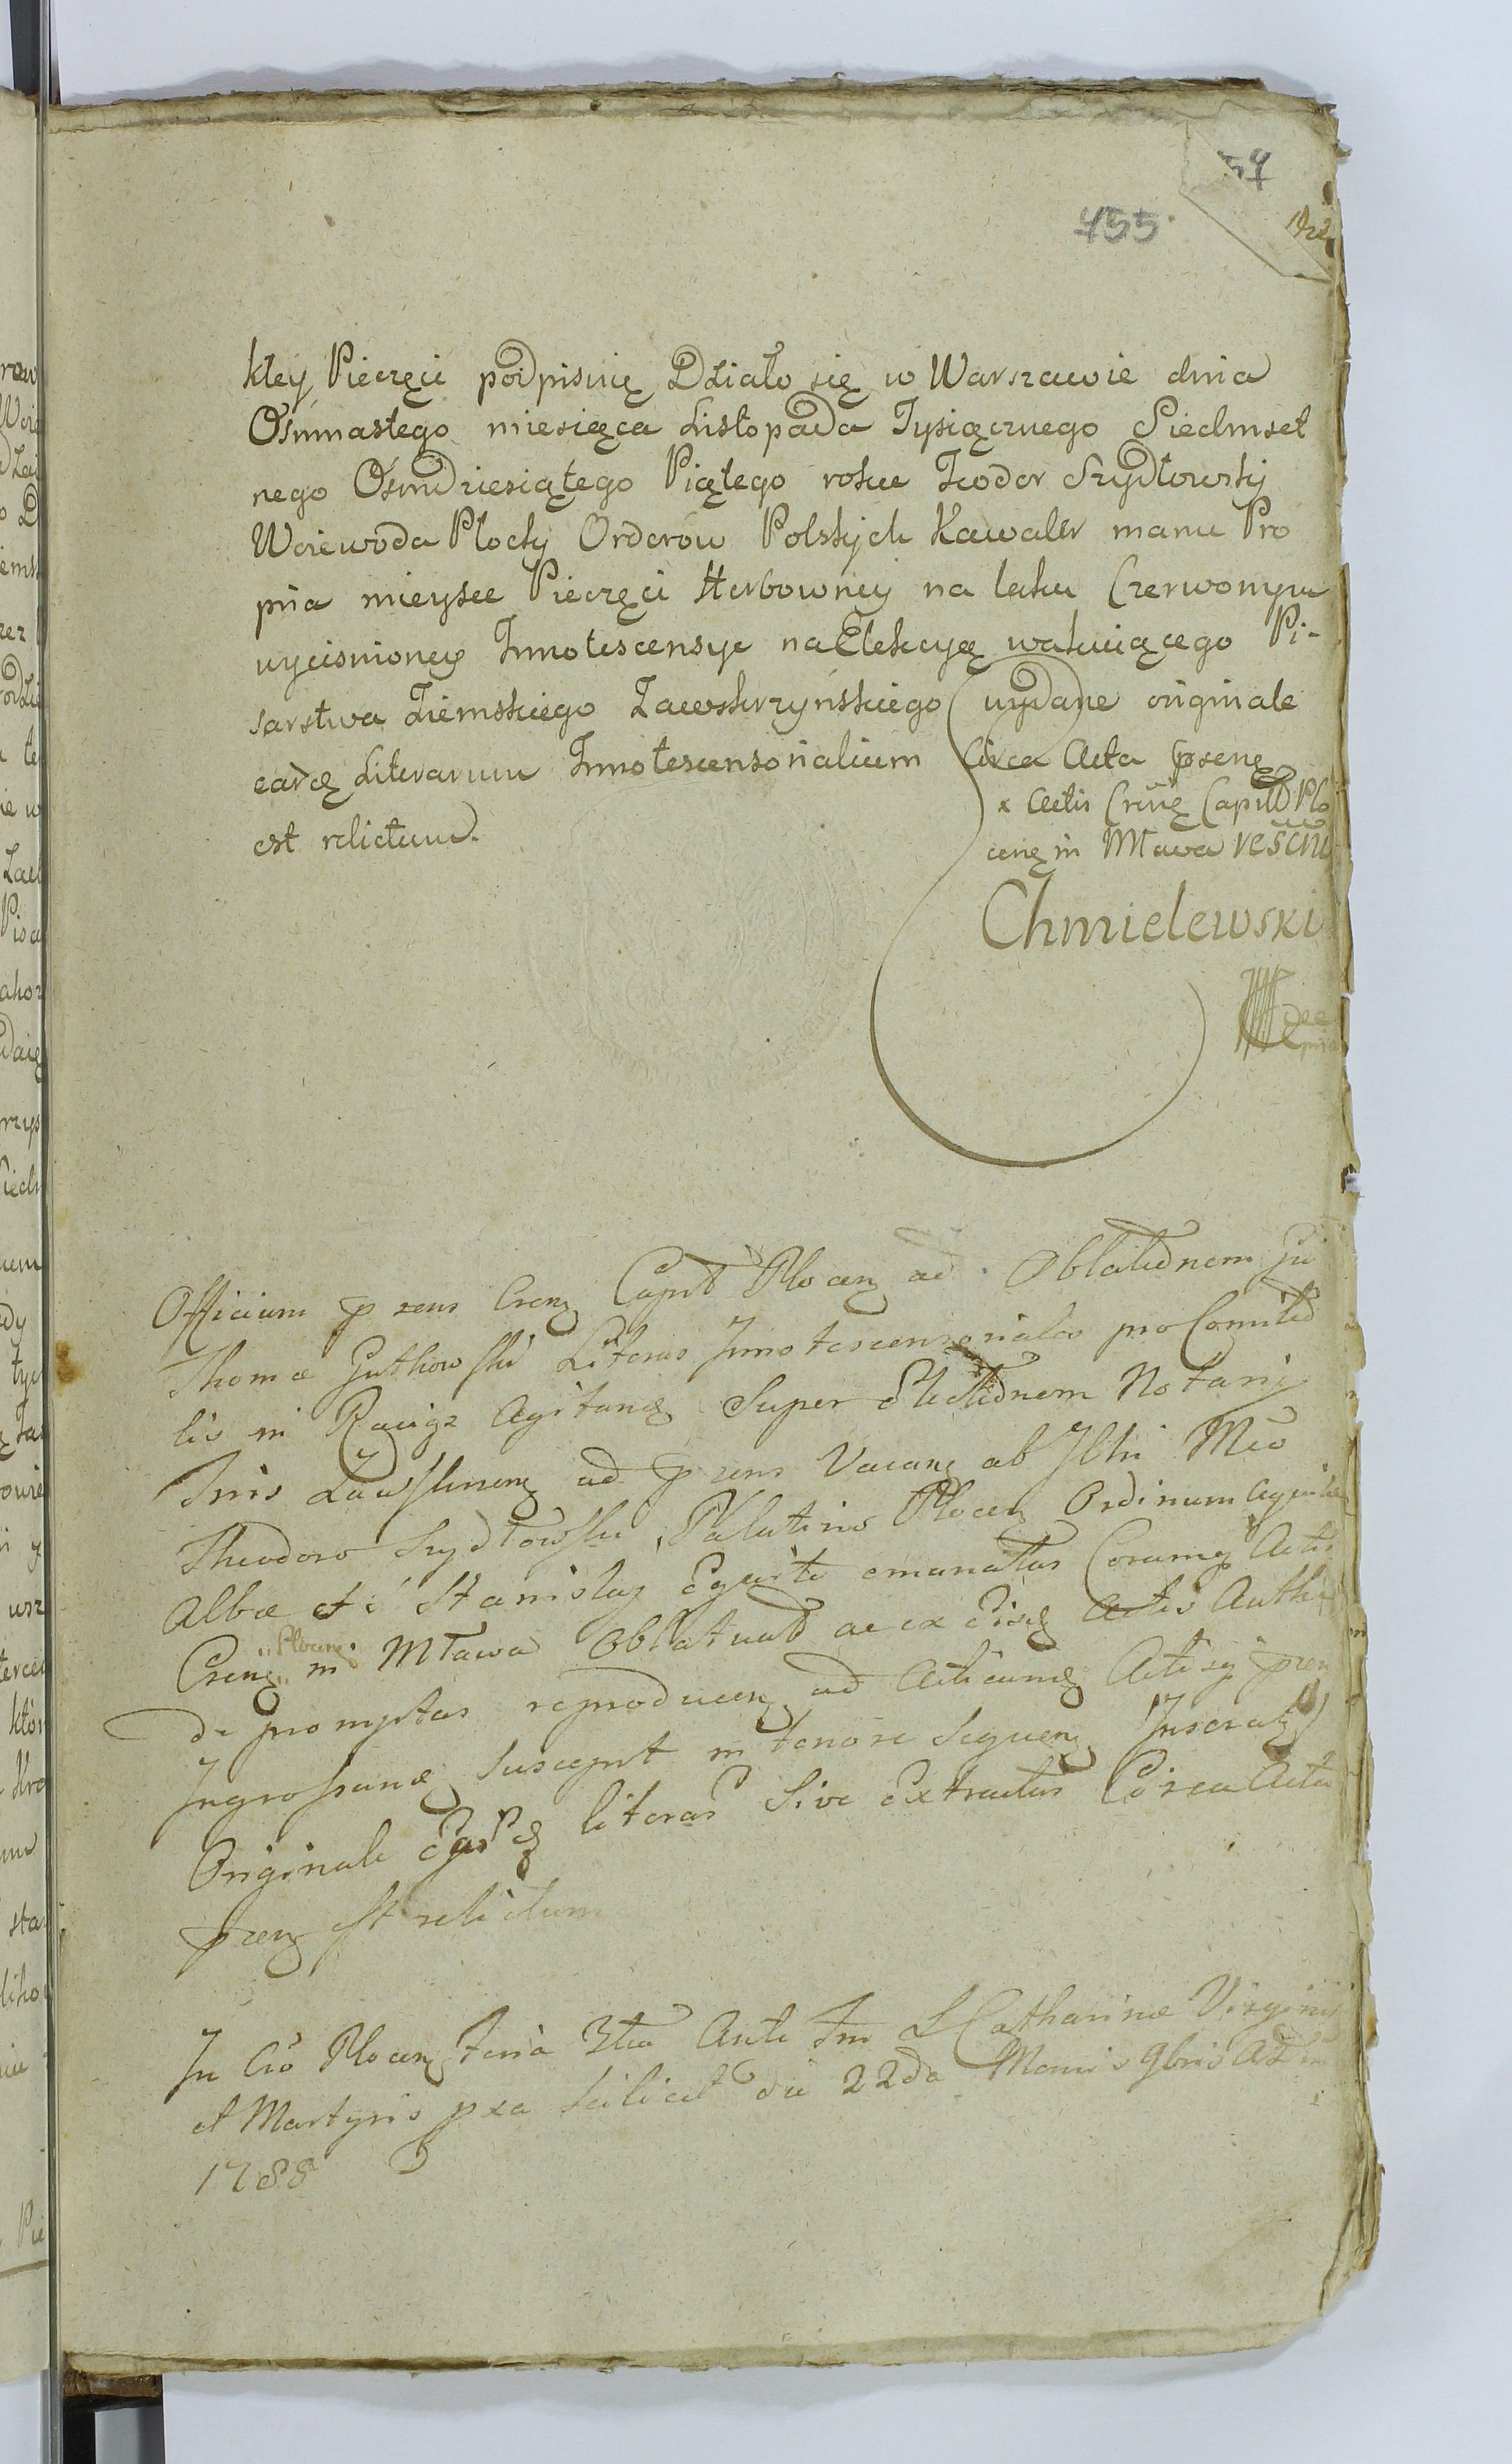 57
455
kley Pieczęci podpisuię Działo się w Warszawie dnia
Osmnastego miesięca Listopada Tysiącznego Siedmset
nego Osmdziesiątego Piątego roku Teodor Szydłowsky
Woiewoda Płocky Orderow Polskych Kawaler manu Pro
pria mieysce Pieczęci Herbowney na laku Czerwonym
wycisnioney Innotescensye na Elekcyą wakuiącego Pi-
sarstwa Ziemskiego Zawskrzyńskiego wydane originale
earę Literarum Innotescensorialium Circa Acta psenę
est relictum.
x Actis Crñę Capitl Plo
cenę in Mława
Chmielewski
Officium prens Crenę Capit Plocenę ad Oblatõnem
Thomæ Gutkowski Literas Innotescensoriales pro Comitÿ
lis in Raciąz Agitandę Super Electiõnem Notarij
Tris Zawskrnenę ad prens Vacanę ab Illri Mco
Theodoro Szydłowski Palatino Plocen Ordinum Aquilæ
Albæ et S Stanislaj Equite emanatas Coramq Actis
Crenę Plocenę in Mława Oblatuad ac ex Eisdę Actis Authę
de promptas reproducenę ad Acticandę Actisq pren
Ingrossandę Suscepit in tenore Sequenę Inseratę
Originale literas Sive Extractus Circa Acta
prenę est relictum
In Cro Plocenę Feria 3tia Ante Fm S Catharinæ Virginis
et Martyris pxa scilicet die 22da Mensis 9bris A D
1788